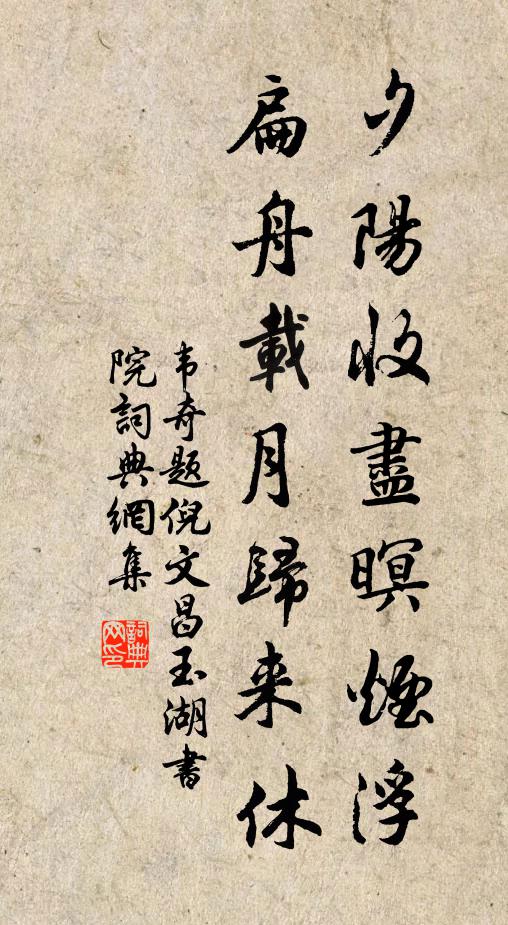 夕陽收盡暝煙浮
扁舟載月歸来休
韦奇题倪文昌玉湖書
院詞典網集
詞典
网印